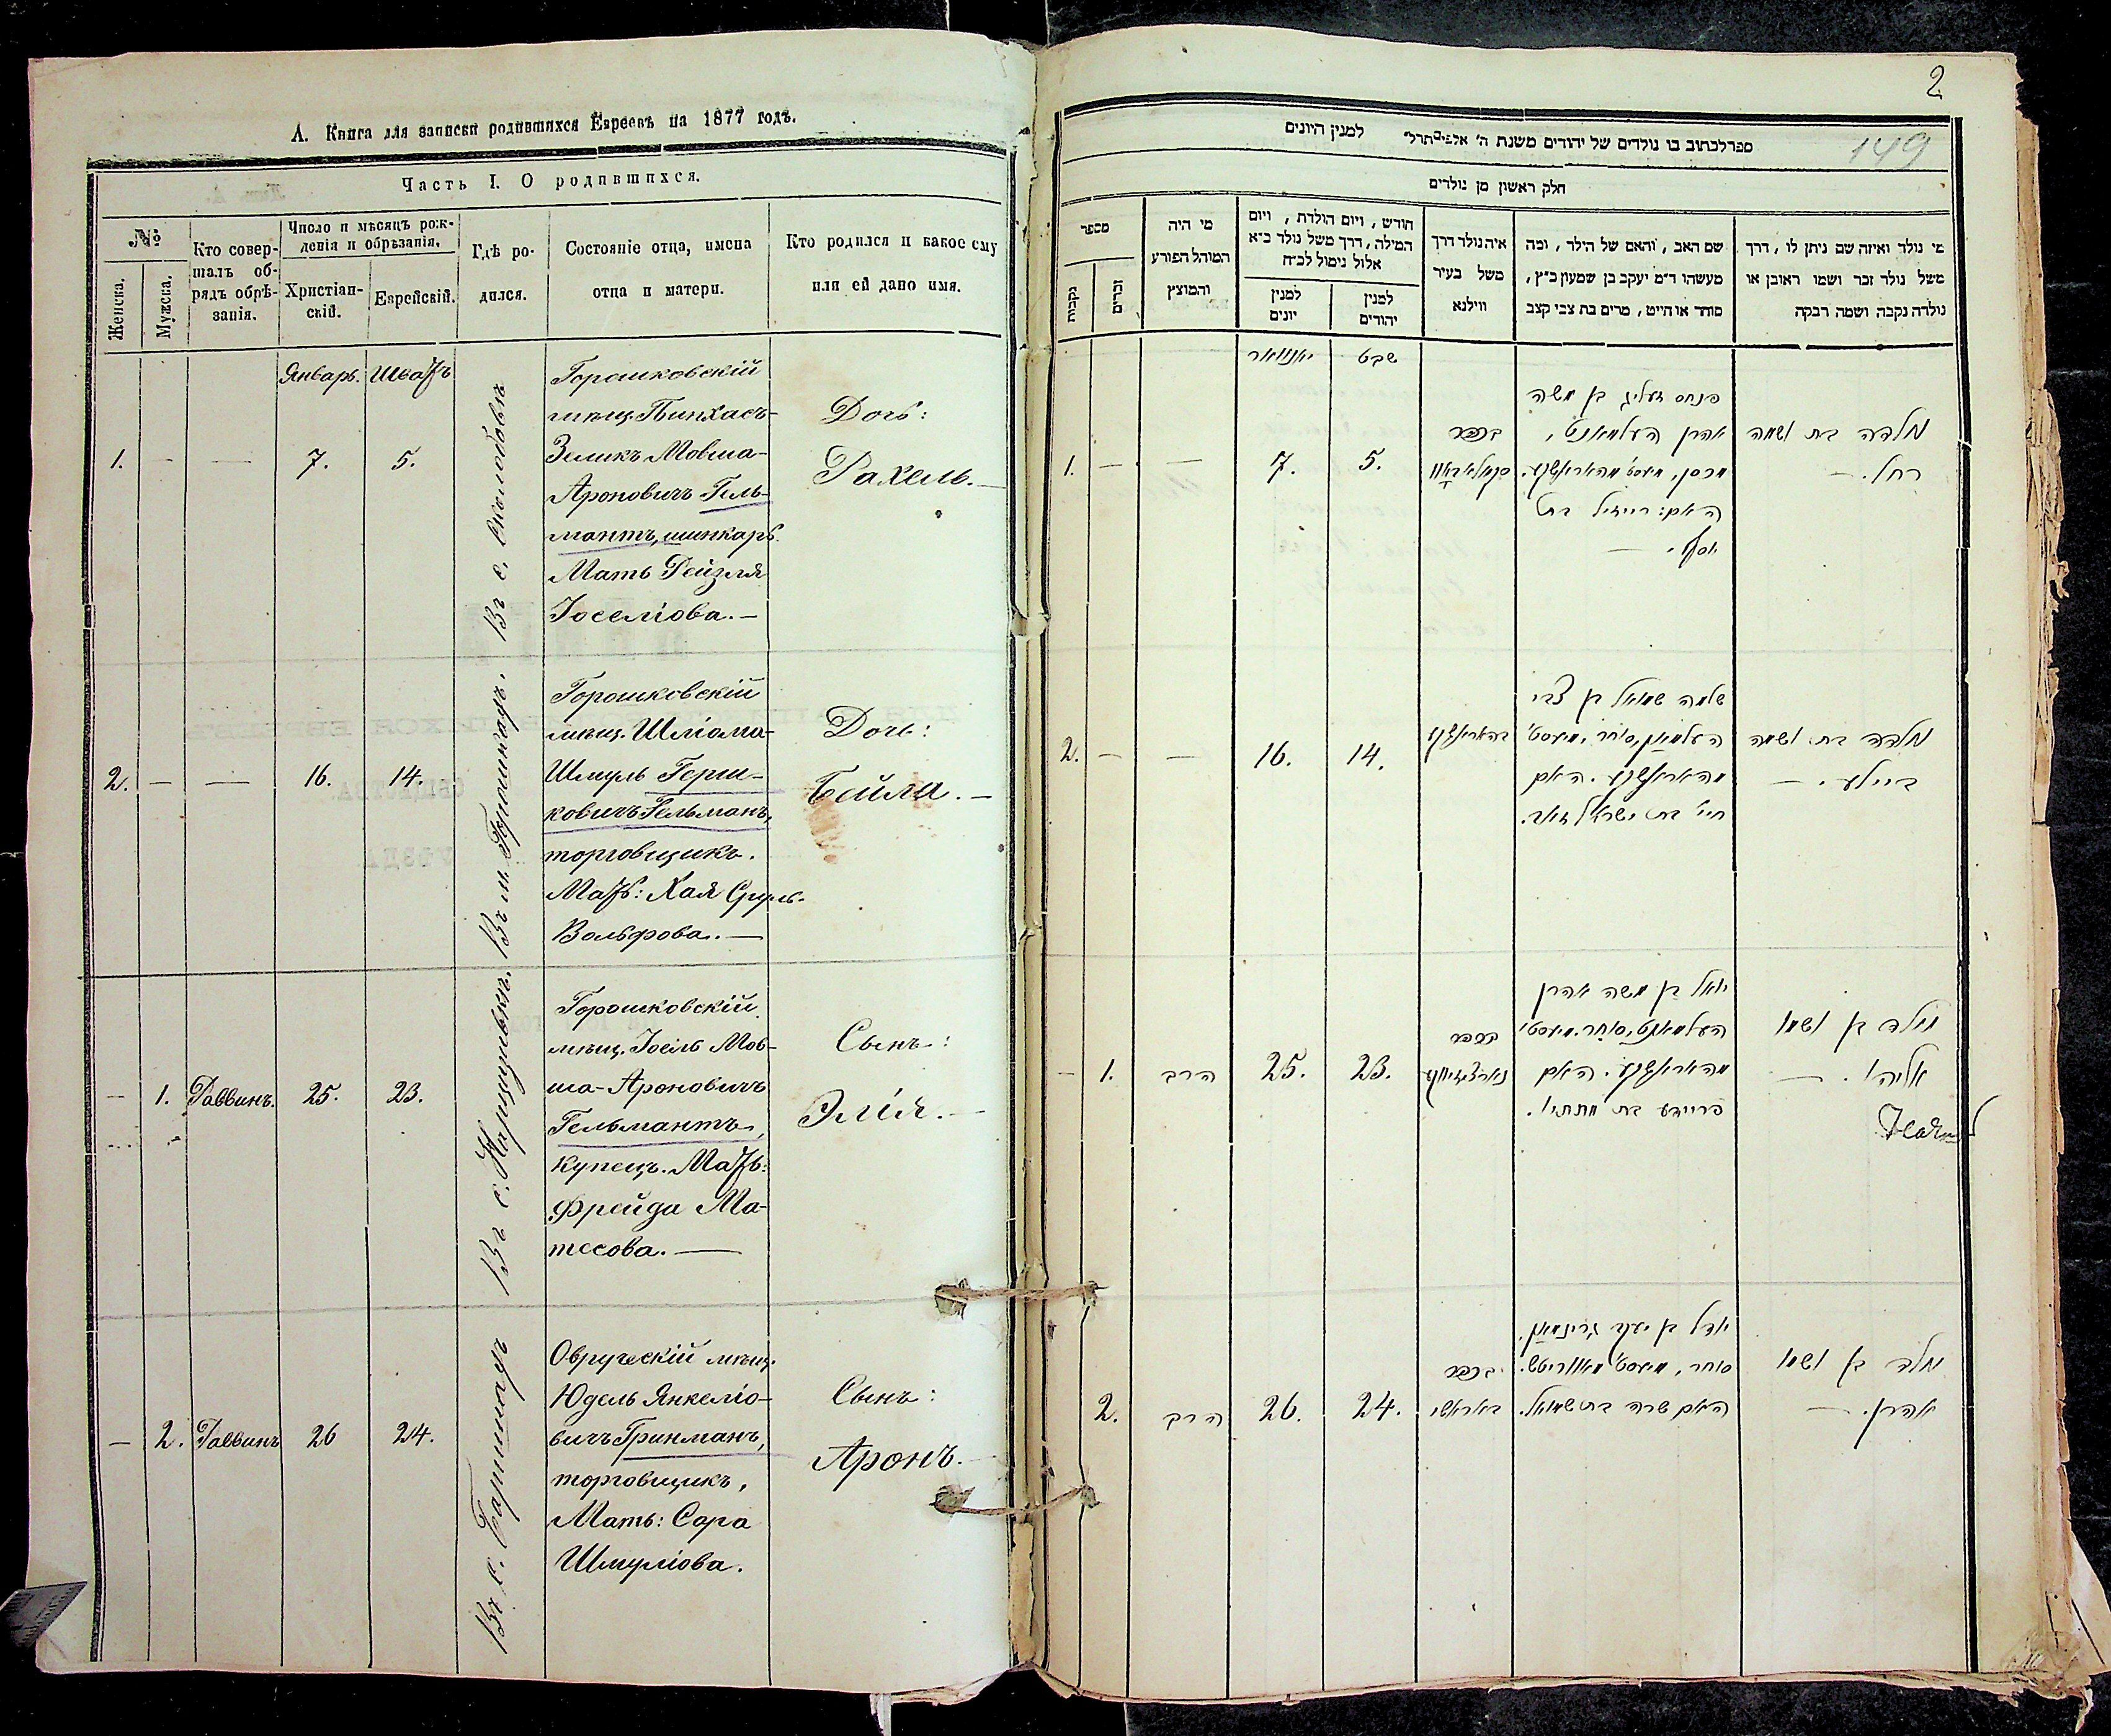 А. Книга для записки родившихся Евреевъ на 1877 годъ.
Часть I. О родившихся.
№
Женска.
Мужска.
Кто совер-
шалъ об-
рядъ обрѣ-
занія.
Число и мѣсяцъ рож-
денія и обрѣзанія.
Христіан-
скій.
Еврейскій.
Гдѣ ро-
дился.
Состояніе отца, имена
отца и матери.
Кто родился и какое ему
или ей дано имя.
Январь. Шватъ
1. — — 7. 5.
Горошковскій
мѣщ. Пинхасъ-
Зеликъ Мовша-
Ароновичъ Гель-
мантъ, шинкарь.
Мать Рейзля
Іоселіова. —
Дочь:
Рахель. —
2. — — 16. 14.
Въ м. Горошкахъ.
Горошковскій
мѣщ. Шліома-
Шмуль Герш-
ковичъ Гельманъ,
торговщикъ.
Мать: Хая Сруль-
Вольфова. —
Дочь:
Бейла. —
— 1. Раввинъ. 25. 23.
Въ с.
Горошковскій
мѣщ. Іосіль Мов-
ша-Ароновичъ
Гельмантъ,
купецъ. Мать:
Фрейда Ма-
тесова. —
Сынъ:
Элія. —
— 2. Раввинъ 26 24.
Въ с.
Овручскій мѣщ.
Юдель Янкеліо-
вичъ Гринманъ,
торговщикъ,
Мать: Сора
Шмуліова.
Сынъ:
Аронъ. —
2
149
ספר לכתוב בו נולדים של יהודים משנת ה' אלפים תרל" למנין היונים
חלק ראשון מן נולדים
מספר
נקבות
זכרים
מי היה
המוהל הפורע
והמוצץ
חודש, ויום הולדת, ויום
המילה, דרך משל נולד כ"א
אלול נימול לכ"ח
למנין
יונים
למנין
יהודים
איה נולד דרך
משל בעיר
ווילנא
שם האב, והאם של הילד, ומה
מעשהו ד"מ יעקב בן שמעון כ"ץ,
סוחר או חייט, מרים בת צבי קצב
מי נולד ואיזה שם ניתן לו, דרך
משל נולד זכר ושמו ראובן או
נולדה נקבה ושמה רבקה
יאנוואר שבט
1. — — 7. 5.
בכפר
פנחס זעליג בן משה
אהרן העלמאנט,
האם: רייזיל בת
יוסף. —
נולדה בת ושמה
רחל. —
2. — — 16. 14.
שלמה שמואל בן צבי
האם
חי' בת ישראל זאב.
נולדה בת ושמה
ביילע. —
— 1. הרב 25. 23.
בכפר
יואל בן משה אהרן
האם
פריידע בת מתתיו.
נולד בן ושמו
אליהו. —
2. הרב 26. 24.
בכפר
יודל בן יעקב גרינמאן.
סוחר,
האם שרה בת שמואל.
נולד בן ושמו
אהרן. —